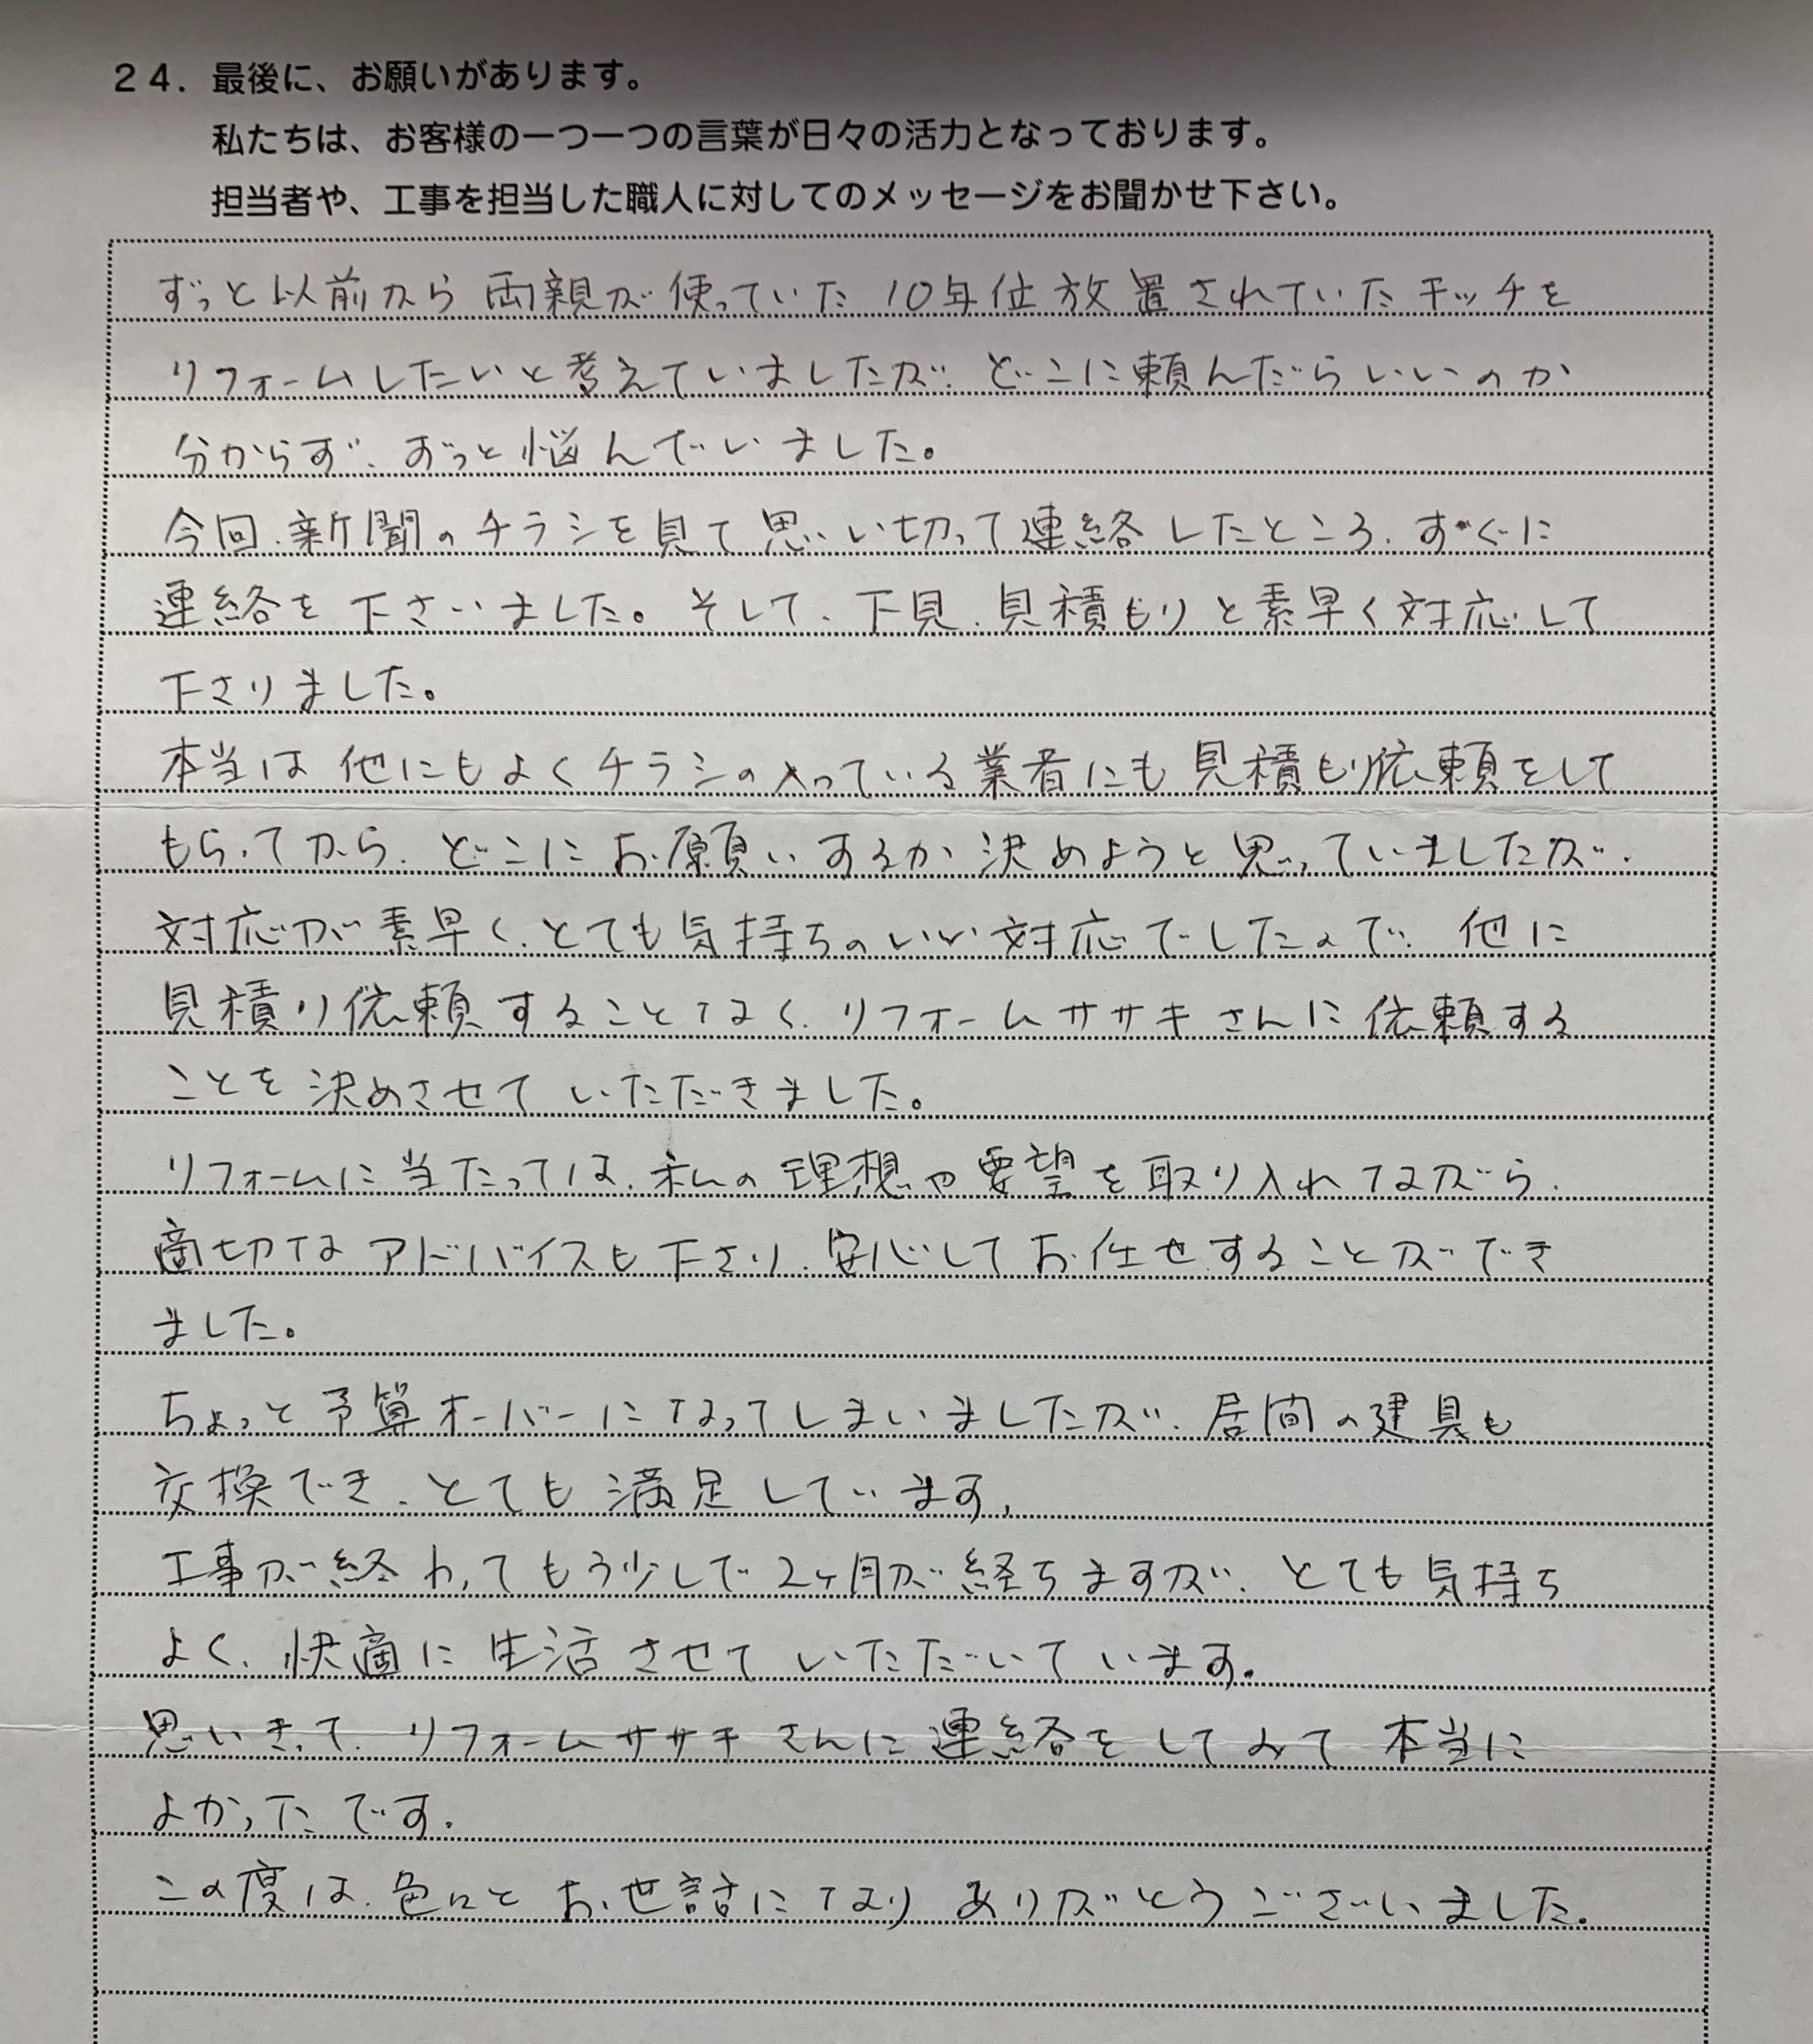 24. 最後に、お願いがあります。
私たちは、お客様の一つ一つの言葉が日々の活力となっております。
担当者や、工事を担当した職人に対してのメッセージをお聞かせ下さい。
ずっと以前から両親が使っていた10年位放置されていたキッチを
リフォームしたいと考えていましたが、どこに頼んだらいいのか
分からず、ずっと悩んでいました。
今回、新聞のチラシを見て思い切って連絡したところ、すぐに
連絡を下さいました。そして、下見、見積もりと素早く対応して
下さりました。
本当は他にもよくチラシの入っている業者にも見積もり依頼をして
もらってから、どこにお願いするか決めようと思っていましたが、
対応が素早く、とても気持ちのいい対応でしたので、他に
見積り依頼することなく、リフォームササキさんに依頼する
ことを決めさせていただきました。
リフォームに当たっては、私の理想や要望を取り入れながら、
適切なアドバイスも下さり、安心してお任せすることができ
ました。
ちょっと予算オーバーになってしまいましたが、居間の建具も
交換でき、とても満足しています。
工事が終わってもう少しで2ヶ月が経ちますが、とても気持ち
よく、快適に生活させていただいています。
思いきって、リフォームササキさんに連絡をしてみて本当に
よかったです。
この度は、色々とお世話になりありがとうございました。